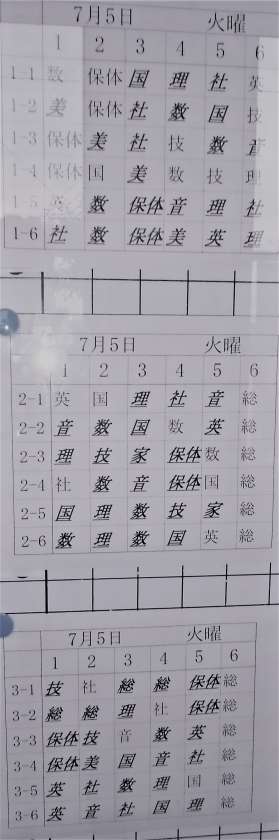 7月5日 火曜
1 2 3 4 5 6
1-1 数 保体 国 理 社 英
1-2 美 保体 社 数 国 技
1-3 保体 美 社 技 数 音
1-4 保体 国 美 数 技 理
1-5 英 数 保体 音 理 社
1-6 社 数 保体 美 英 理
7月5日 火曜
1 2 3 4 5 6
2-1 英 国 理 社 音 総
2-2 音 数 国 数 英 総
2-3 理 技 家 保体 数 総
2-4 社 数 音 保体 国 総
2-5 国 理 数 技 家 総
2-6 数 理 数 国 英 総
7月5日 火曜
1 2 3 4 5 6
3-1 技 社 総 総 保体 総
3-2 総 総 理 社 保体 総
3-3 保体 技 音 数 英 総
3-4 保体 美 国 音 社 総
3-5 英 社 数 理 国 総
3-6 英 音 社 国 理 総